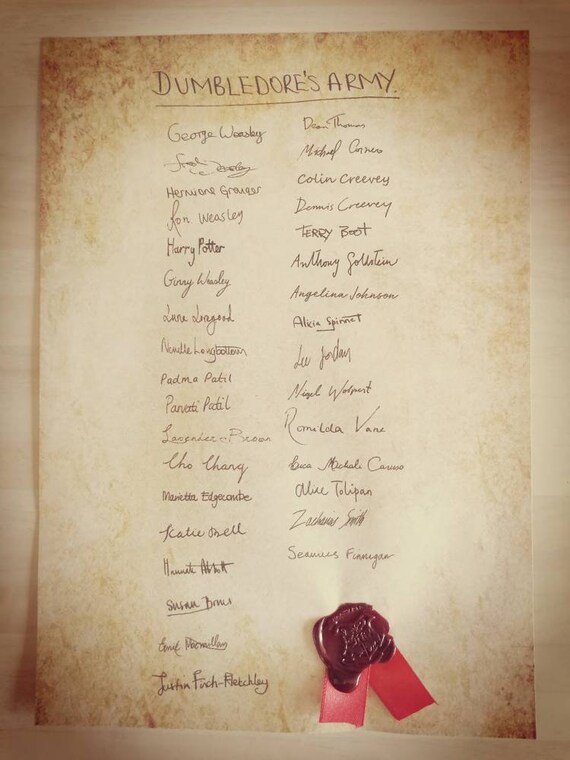 DUMBLEDORE'S ARMY.
George Weasley
Fred Weasley
Hermione Granger
Ron Weasley
Harry Potter
Ginny Weasley
Luna Lovegood
Neville Longbottom
Padma Patil
Parvati Patil
Lavender Brown
Cho Chang
Marietta Edgecombe
Katie Bell
Hannah Abbott
Susan Bones
Ernie Macmillan
Justin Finch-Fletchley
Dean Thomas
Michael Corner
Colin Creevey
Dennis Creevey
TERRY BOOT
Anthony Goldstein
Angelina Johnson
Alicia Spinnet
Lee Jordan
Nigel Wolpert
Romilda Vane
Luca Michele Caruso
Alice Tolipan
Zacharias Smith
Seamus Finnigan